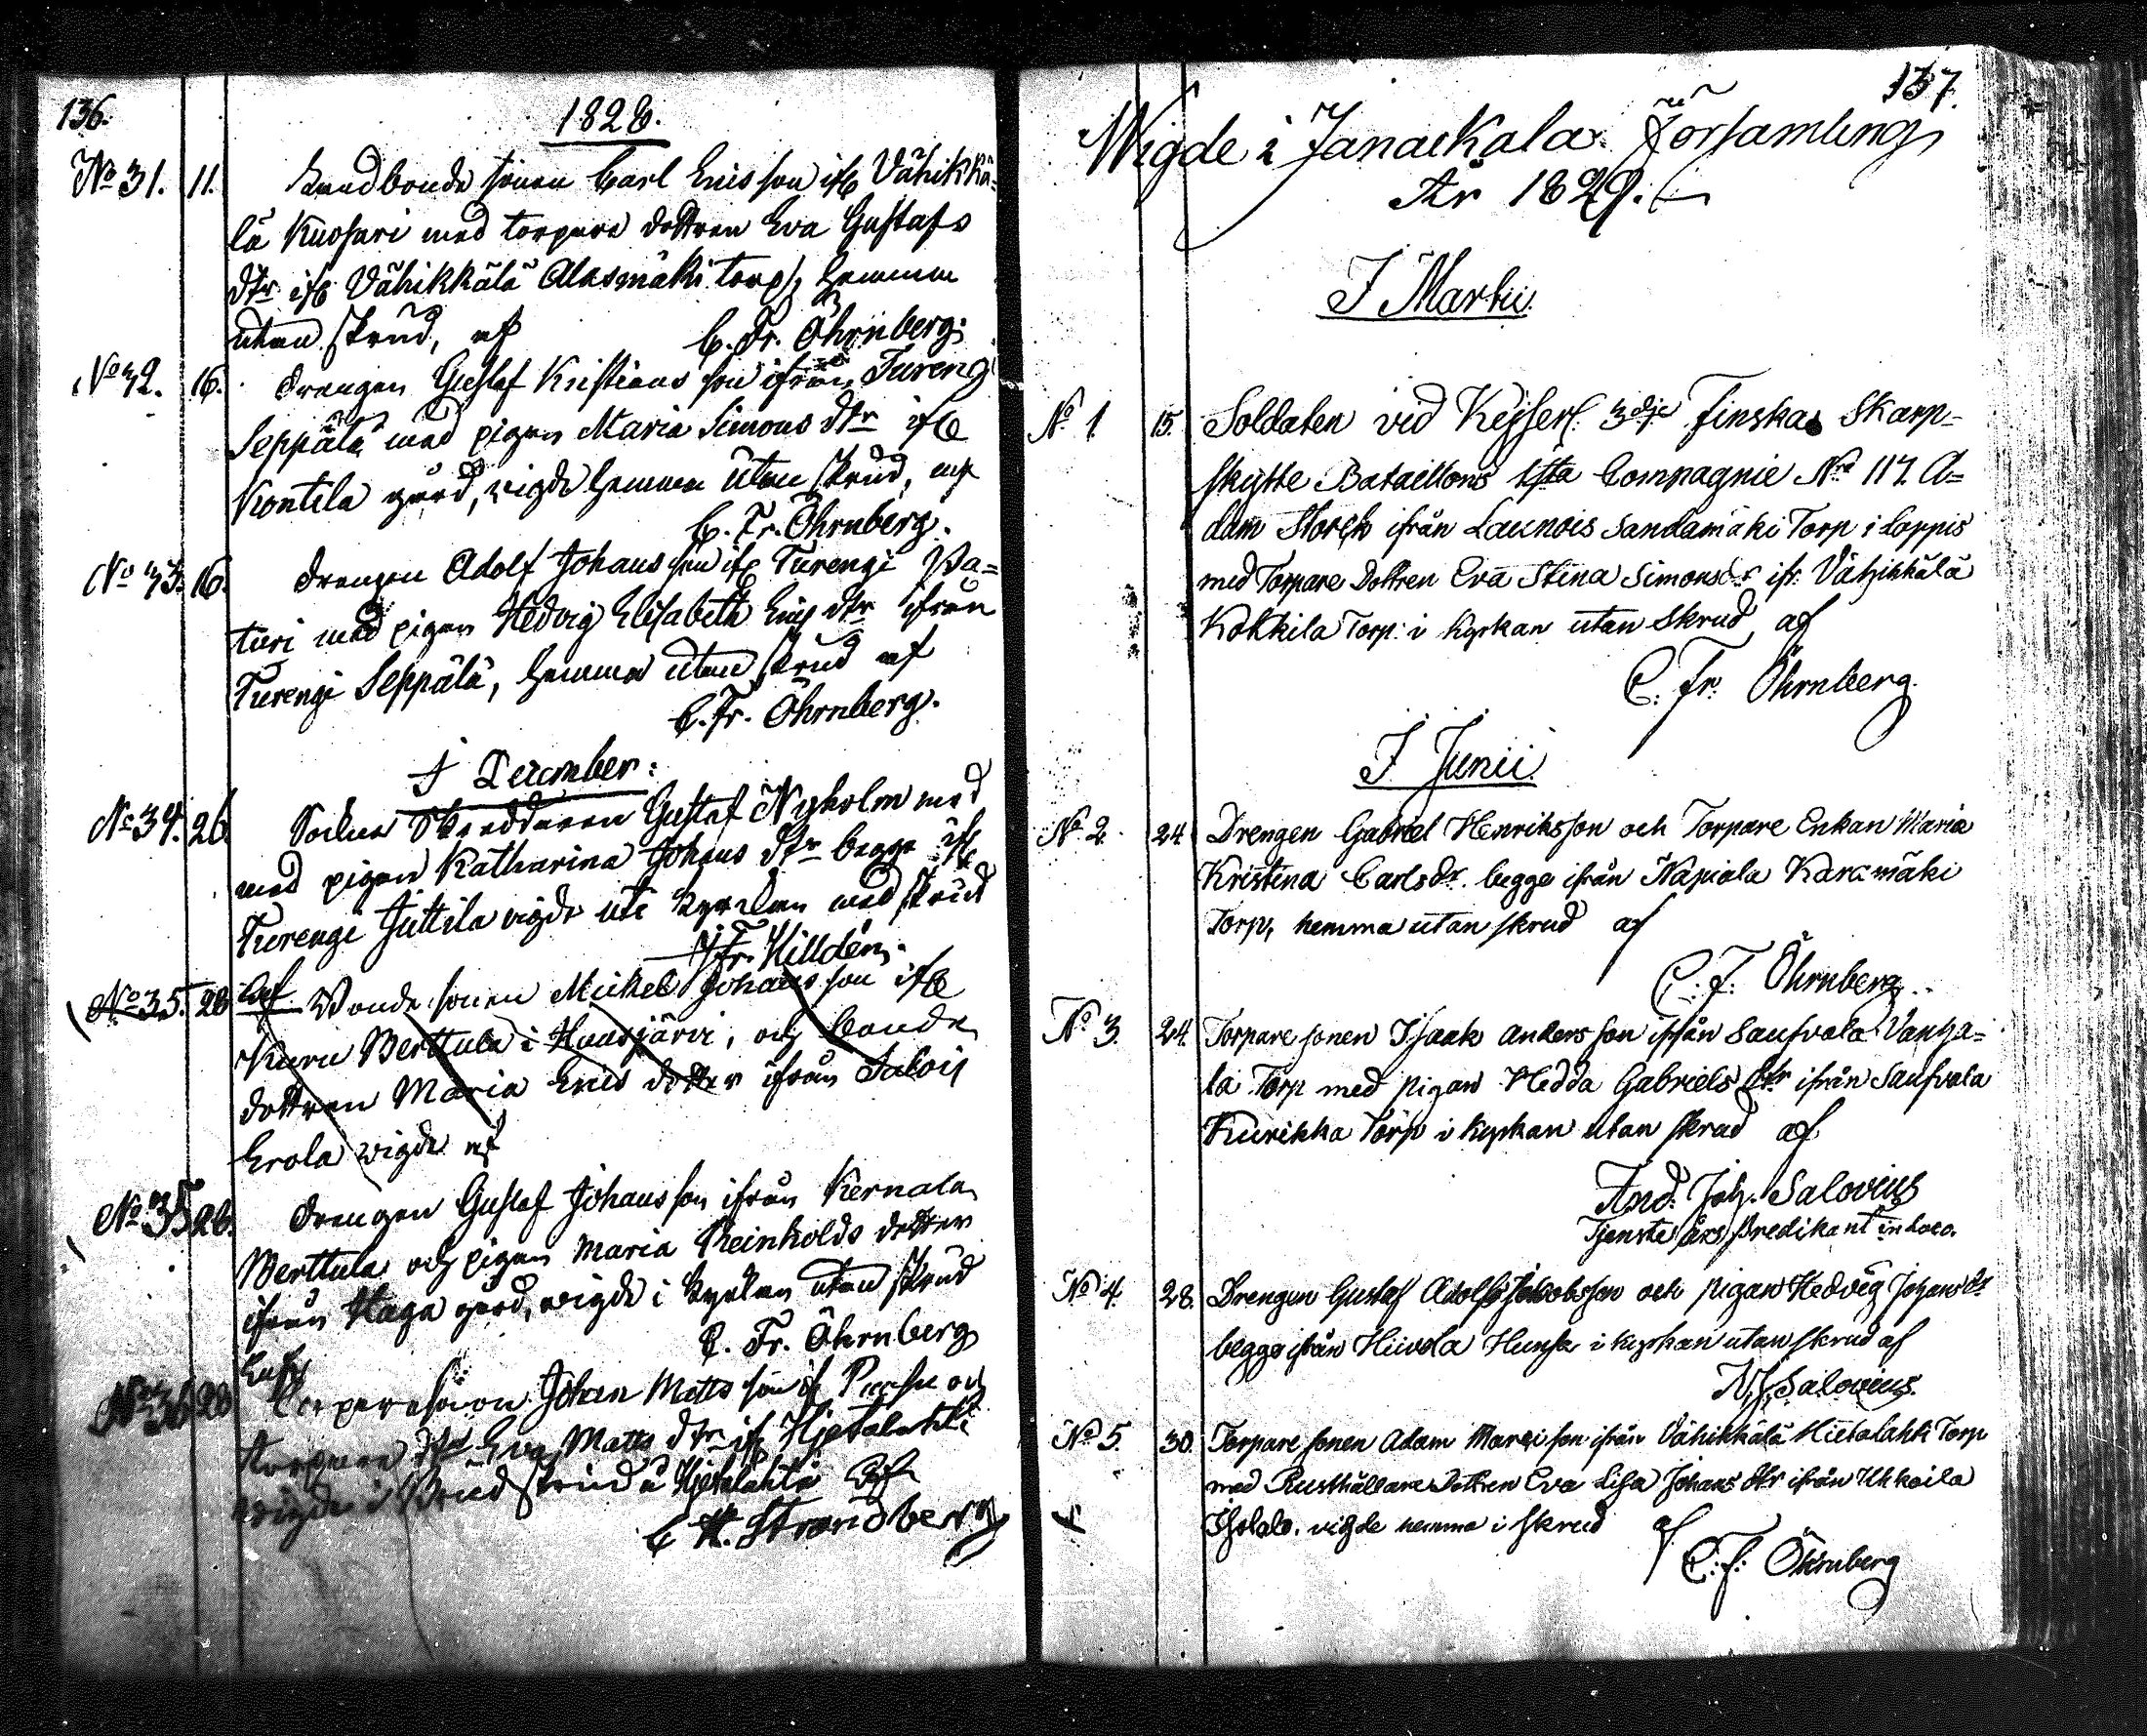 136.
1828.
No 31. 11. Landbonde sonen Carl Erics son ifr Vähikkä-
lä Kuosari med torpare dottren Eva Gustafs
dtr ifr Vähikkälä Alasmäki torp, hemma
utan skrud, af C. Fr. Öhrnberg.
No 32. 16. Drengen Gustaf Kristians son ifrån Tureng
Seppälä med pigan Maria Simons dtr ifr
Kontila gård, vigde hemma utan skrud, af
C. Fr. Öhrnberg.
No 33. 16. Drengen Adolf Johans son ifr Turengi Wa-
turi med pigan Hedvig Elisabeth Erics dtr ifrån
Turengi Seppälä, hemma utan skrud af
C. Fr. Öhrnberg.
I December:
No 34. 26. Sockne Skreddaren Gustaf Nyholm med
med pigan Katharina Johans dtr begge ifr
Turengi Juttila vigde uti kyrkan med skrud
af Fr. Hilldén.
No 35. 28 Bonde sonen Mickel Johans son ifr
Kuru Berttula i Hausjärvi, och bonde
dottren Maria Erics dotter ifrån Salois
Erola vigde af
No 35 26. Drengen Gustaf Johans son ifrån Kernala
Berttula och pigan Maria Reinholds dotter
ifrån Haga gård, vigde i kyrkan utan skrud
C. Fr. Öhrnberg
No 36 28 Torparesonen Johan Matts son if och
torpare dtr Eva Matts dtr if Hjetalahti
vigde i Brudskrud i Hjetalahti af
C H. Strandberg
137.
Wigde i Janackala Församling
År 1829.
I Martii.
No 1. 15. Soldaten vid Keyserl. 3dje Finska Skarp-
skytte Bataillons 1sta Compagnie Nro 117. A-
dam Storck ifrån Launois Sandamäki Torp i Loppis
med Torpare Dottren Eva Stina Simonsdr ifr. Vähikkälä
Kokkila Torp i Kyrkan utan Skrud af
C. Fr. Öhrnberg.
I Junii.
No 2. 24 Drengen Gabriel Henriksson och Torpare Enkan Maria
Kristina Carlsdr. begge ifrån Napiala Karamäki
Torp, hemma utan skrud af
C. F. Öhrnberg.
No 3. 24. Torpare sonen Isaak Anders son ifrån Saufvala Vanha-
la Torp med pigan Hedda Gabriels dtr ifrån Saufvala
Kurikka Torp i kyrkan utan skrud af
And. Joh. Salovius
Tjenste års Predikant in loco.
No 4. 28. Drengen Gustaf Adolf Jakobsson och pigan Hedvig Johansdr
begge ifrån Hiivola i kyrkan utan skrud af
A. J. Salovius.
No 5. 30. Torpare sonen Adam son ifrån Vähikkälä Hietalahti Torp
med Rusthållare Dottren Eva Lisa Johans dtr ifrån Uhkoila
Isotalo. vigde hemma i skrud af
C. F. Öhrnberg